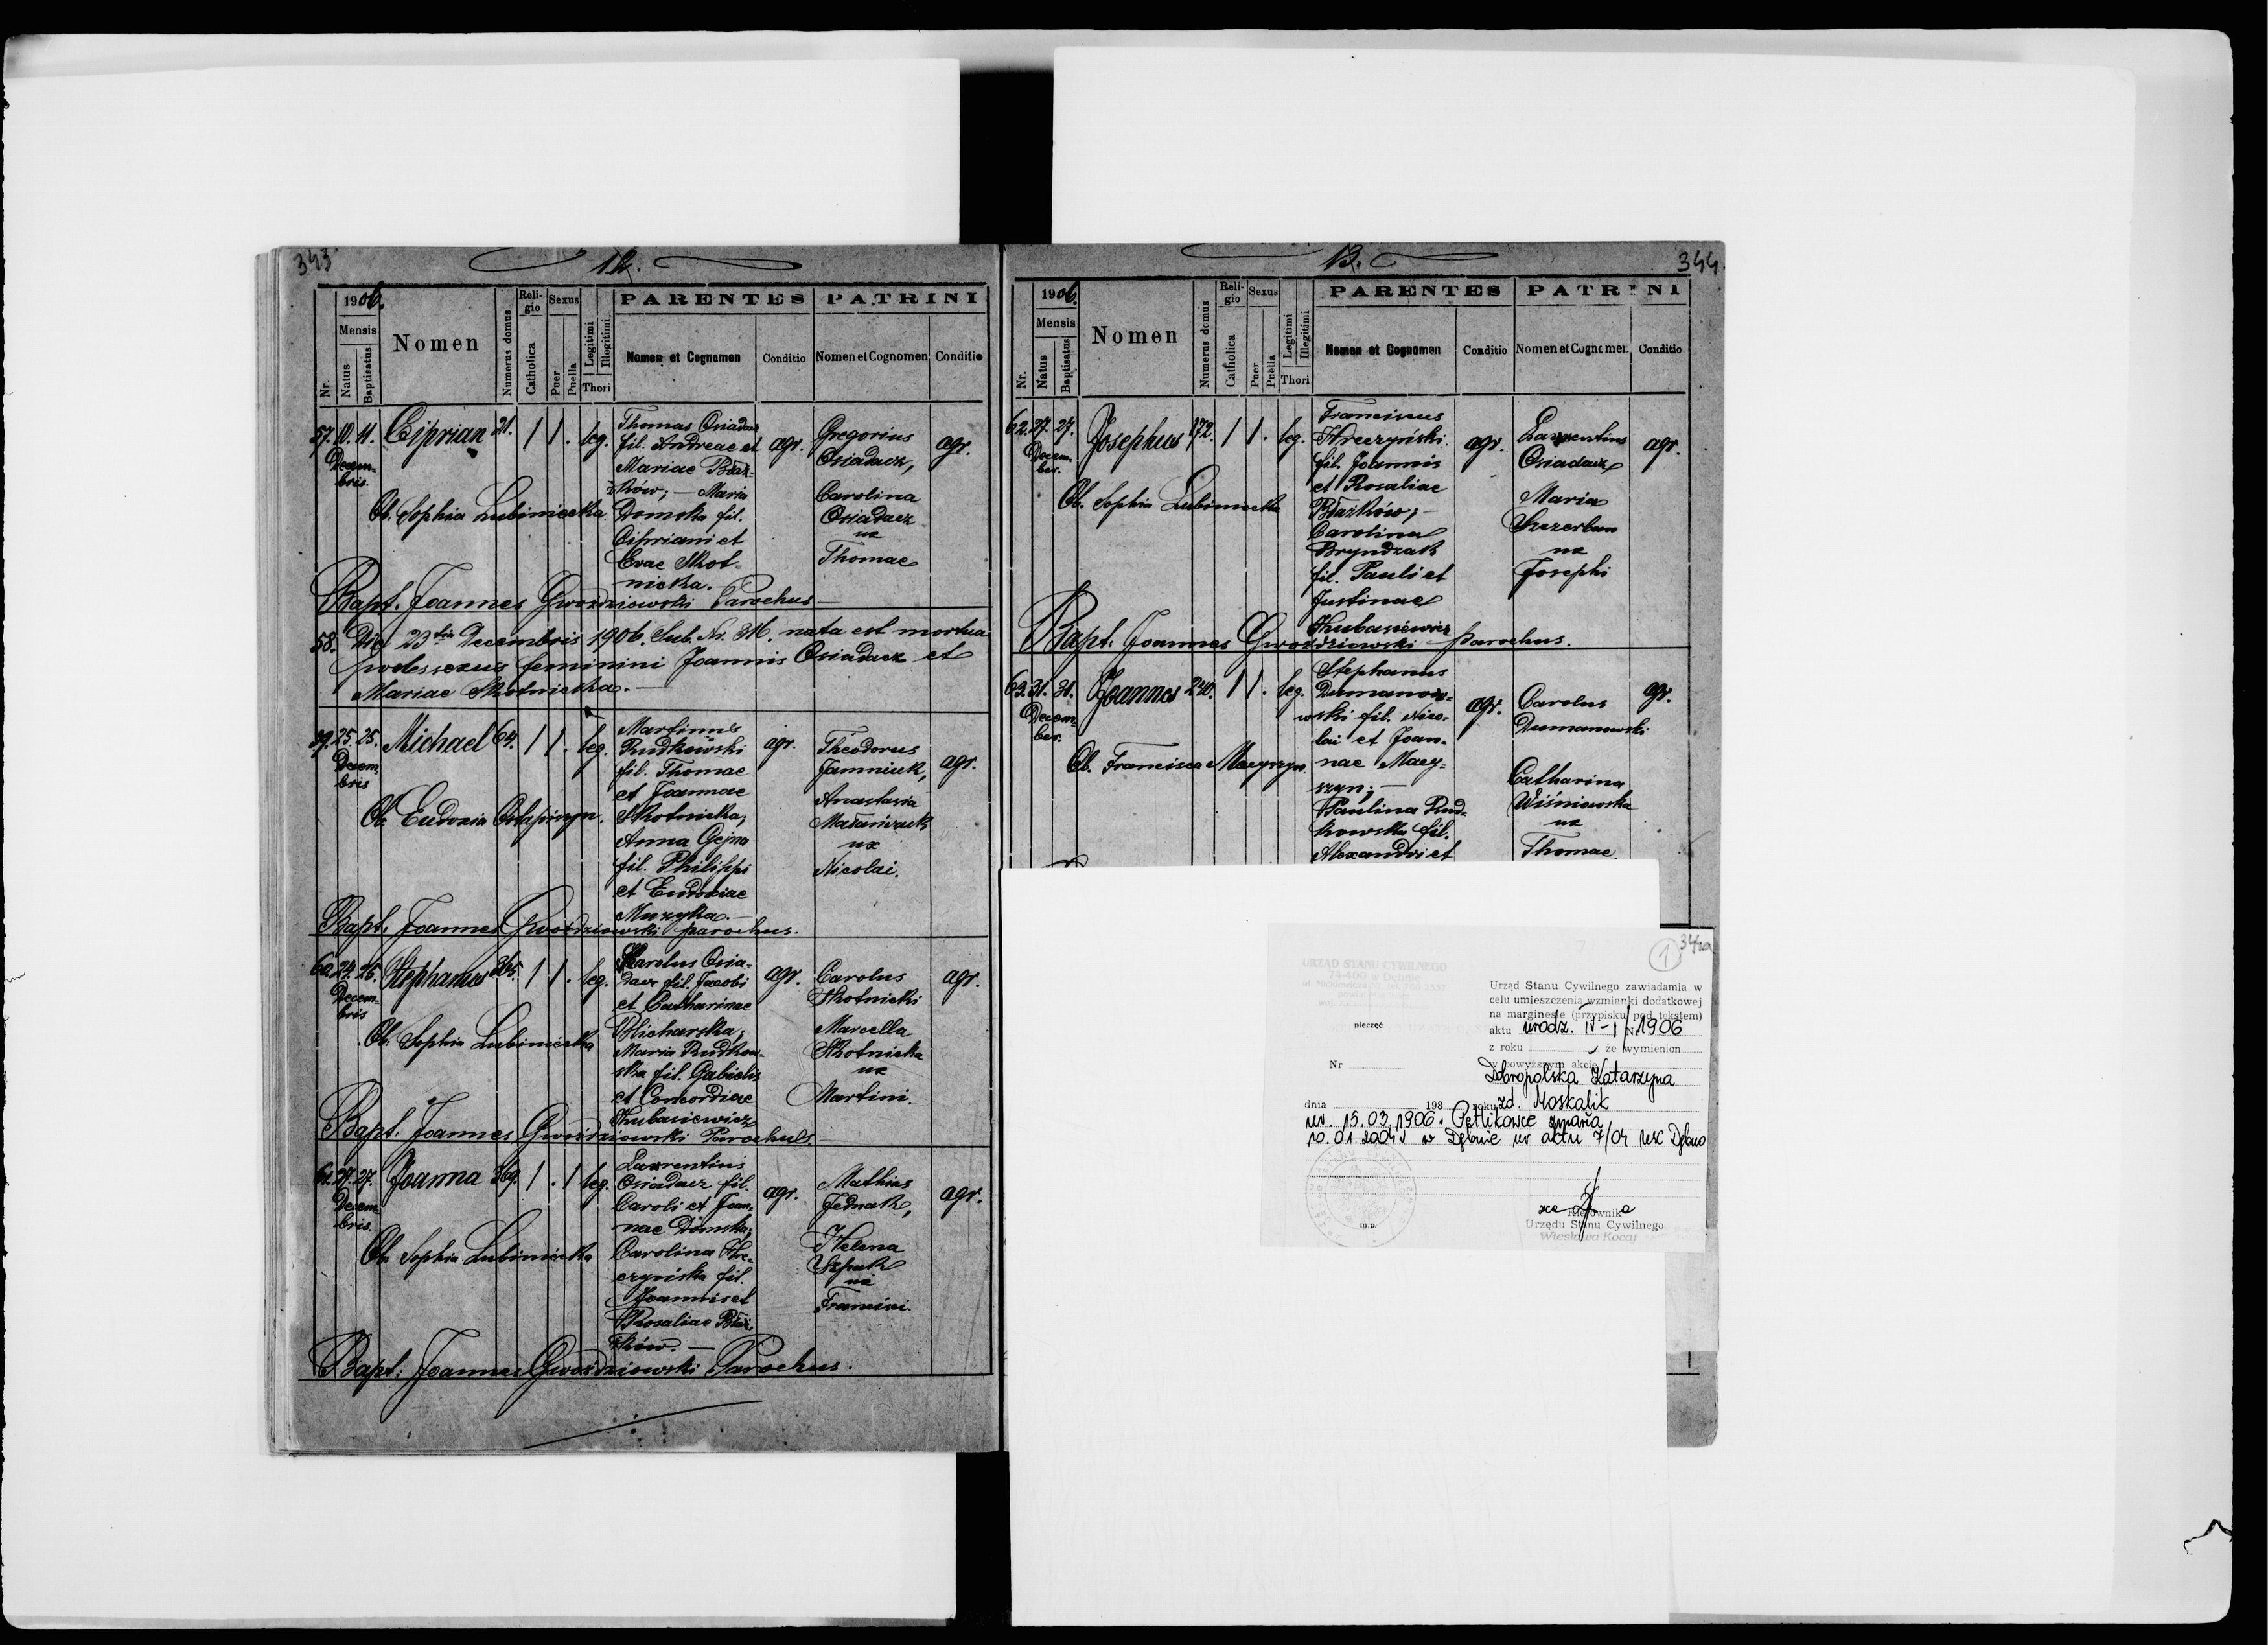 343
12.
1906.
Mensis
Nr.
Natus
Baptisatus
Nomen
Numerus domus
Religio
Catholica
Sexus
Puer
Puella
Legitimi
Illegitimi
Thori
PARENTES
Nomen et Cognomen
Conditio
PATRINI
Nomen et Cognomen
Conditio
57. 10. 11. Ciprian 21. 1 1. leg.
Decembris.
Ob. Sophia Lubiniecka
Thomas Osiadacz
fil. Andreae et
Mariae Błaż-
ków; — Maria
Domska fil.
Cipriani et
Evae Skot-
nicka.
agr.
Gregorius
Osiadacz,
Carolina
Osiadacz
ux
Thomae
agr.
Bapt. Joannes Gwoździowski Parochus
58. Die 23tia Decembris 1906. Sub. Nr. 316. nata est mortua
proles sexus feminini Joannis Osiadacz et
Mariae Skotnicka. —
59. 25. 25. Michael 64. 1 1. leg.
Decembris
Ob. Eudoxia Ostapiszyn.
Martinus
Rudkowski
fil. Thomae
et Joannae
Skotnicka;
Anna Gejna
fil. Philippi
et Eudoxiae
Muzyka. —
agr.
Theodorus
Jamniuk,
Anastasia
ux
Nicolai.
agr.
Bapt. Joannes Gwoździowski parochus.
60. 24. 25. Stephanus 365. 1 1. leg.
Decembris
Ob. Sophia Lubiniecka
Karolus Osia-
dacz fil. Jacobi
et Catharinae
Blicharska;
Maria Rudkow-
ska fil. Gabrielis
et Concordiae
Kubasiewicz
agr.
Carolus
Skotnicki
Marcella
Skotnicka
ux
Martini.
agr.
Bapt. Joannes Gwoździowski Parochus.
61. 27. 27. Joanna 369. 1 . 1 leg.
Decembris.
Ob. Sophia Lubiniecka
Laurentius
Osiadacz fil.
Caroli et Joan-
nae Domska;
Carolina Hre-
czyńska fil.
Joannis et
Rosaliae Błaż-
ków. —
agr.
Mathias
Jednak,
Helena
Szpak
ux
Francisci.
agr.
Bapt: Joannes Gwoździowski Parochus.
13.
344.
1906.
Mensis
Nr.
Natus
Baptisatus
Nomen
Numerus domus
Religio
Catholica
Sexus
Puer
Puella
Legitimi
Illegitimi
Thori
PARENTES
Nomen et Cognomen
Conditio
PATRINI
Nomen et Cognomen
Conditio
62. 27. 27. Josephus 172. 1 1. leg.
December.
Ob. Sophia Lubiniecka
Franciscus
Hreczyński
fil. Joannis
et Rosaliae
Błażków; —
Carolina
Bryndzak
fil. Pauli et
Justinae
Kubasiewicz
agr.
Laurentius
Osiadacz
Maria
Szczerban
ux
Josephi
agr.
Bapt: Joannes Gwoździowski parochus.
63. 31. 31. Joannes 230. 1 1. leg.
December.
Ob. Francisca Macyszyn.
Stephanus
Dumanow-
wski fil. Nico-
lai et Joan-
nae Macy-
szyn; —
Paulina Rud-
kowska fil.
Alexandri et
agr.
Carolus
Dumanowski
Catharina
Wiśniowska
ux
Thomae.
agr.
1
344a
URZĄD STANU CYWILNEGO
74-400 w Dębnie
pieczęć
Nr
dnia 198 roku
Urząd Stanu Cywilnego zawiadamia w
celu umieszczenia wzmianki dodatkowej
na marginesie (przypisku pod tekstem)
aktu urodz. IV-1/ Nr 1906
z roku , że wymienion
w powyższym akcie
Dobropolska Katarzyna
zd. Moskalik
ur. 15.03.1906. Petlikowce zmarła
10.01.2004 w Dębnie nr aktu 7/04 USC Dębno
m.p.
Kierownik
Urzędu Stanu Cywilnego
Wiesława Kocaj